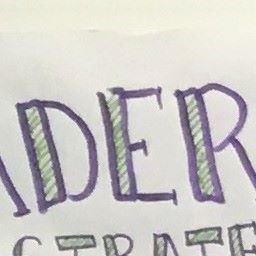 ADER
STRATE